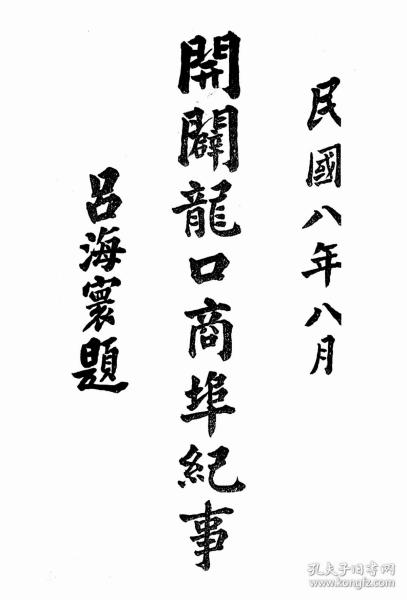 民國八年八月
開闢龍口商埠紀事
呂海寰題
孔夫子旧书网
www.kongfz.com